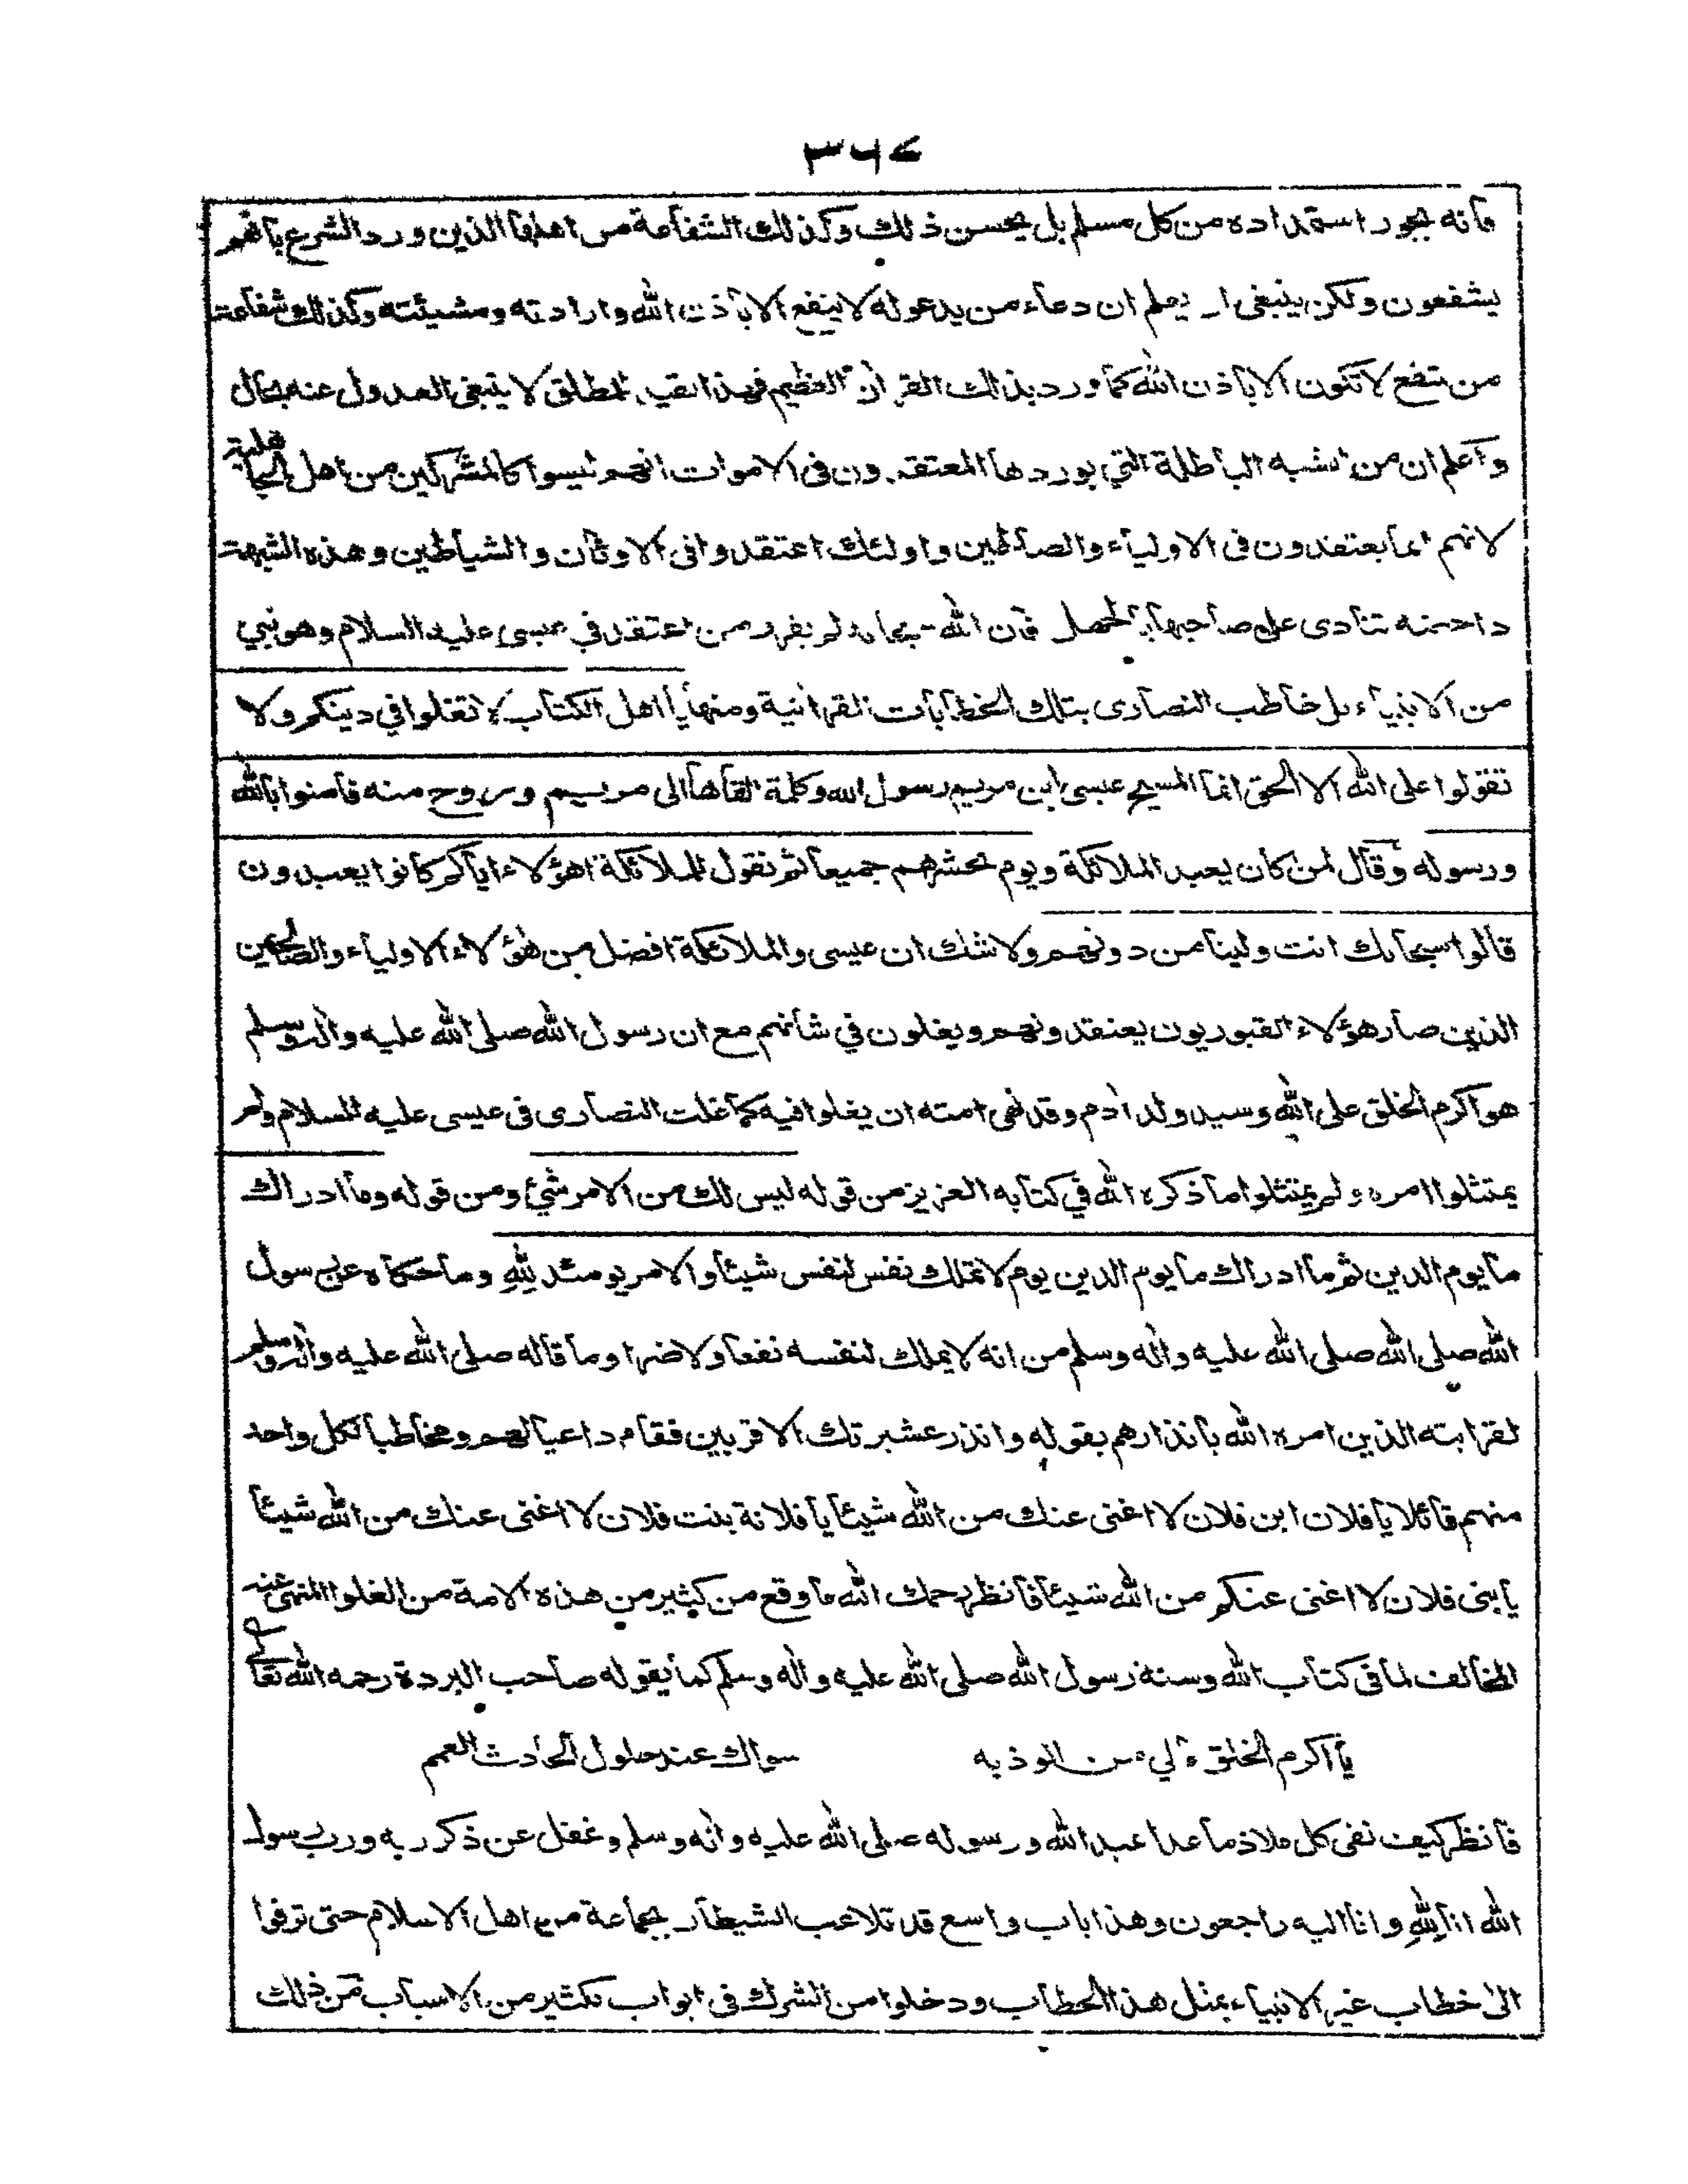 ٣٦٧
فانه يجوز استمداده من كل مسلم بل يحسن ذلك وكذلك الشفاعة من اهلها الذين ورد الشرع بانهم
يشفعون ولكن ينبغى ان يعلم ان دعاء من يدعوله لا ينفع الا باذن الله وارادته ومشيئته وكذلك شفاعة
من تنفع لا تكون الا باذن الله كما ورد بذلك القرآن العظيم فهذا تقييد المطلق لا ينبغى العدول عنه بحال
واعلم ان من الشبه الباطلة التي يوردها المعتقدون فى الاموات انهم ليسوا كالمشركين من اهل الجاهلية
لانهم انما يعتقدون فى الاولياء والصالحين واولئك اعتقدوا فى الاوثان والشياطين وهذه الشبهة
داحضة تنادى على صاحبها بالجهل فان الله سبحانه لم يعذر من اعتقد في عيسى عليه السلام وهو نبي
من الانبياء بل خاطب النصارى بتلك الخطابات القرانية ومنها يا اهل الكتاب لا تغلوا في دينكم ولا
تقولوا على الله الا الحق انما المسيح عيسى ابن مريم رسول الله وكلمة القاها الى مريم وروح منه فامنوا بالله
ورسوله وقال لمن كان يعبد الملائكة ويوم نحشرهم جميعا ثم نقول للملائكة اهؤلاء اياكم كانوا يعبدون
قالوا سبحانك انت ولينا من دونهم ولا شك ان عيسى والملائكة افضل من هؤلاء الاولياء والصالحين
الذين صار هؤلاء القبوريون يعتقدونهم ويغلون في شانهم مع ان رسول الله صلى الله عليه واله وسلم
هو اكرم الخلق على الله وسيد ولد ادم وقد نهى امته ان يغلوا فيه كما غلت النصارى فى عيسى عليه السلام ولم
يمتثلوا امره ولم يمتثلوا ما ذكره الله في كتابه العزيز من قوله ليس لك من الامر شئ ومن قوله وما ادراك
ما يوم الدين ثم ما ادراك ما يوم الدين يوم لا تملك نفس لنفس شيئا والامر يومئذ لله وما حكاه عن رسول
الله صلى الله صلى الله عليه واله وسلم من انه لا يملك لنفسه نفعا ولا ضرا وما قاله صلى الله عليه واله وسلم
لقرابته الذين امره الله بانذارهم بقوله وانذر عشيرتك الاقربين فقام داعيا لهم ومخاطبا لكل واحد
منهم قائلا يا فلان ابن فلان لا اغنى عنك من الله شيئا يا فلانة بنت فلان لا اغنى عنك من الله شيئا
يا بنى فلان لا اغنى عنكم من الله شيئا فانظر رحمك الله ما وقع من كثير من هذه الامة من الغلو المنهى عنه
المخالف لما فى كتاب الله وسنة رسول الله صلى الله عليه واله وسلم كما يقوله صاحب البردة رحمه الله تعالى
يا اكرم الخلق مالي من الوذ به سواك عند حلول الحادث العمم
فانظر كيف نفى كل ملاذ ما عدا عبد الله ورسوله صلى الله عليه واله وسلم وغفل عن ذكر ربه ورب رسول
الله انا لله وانا اليه راجعون وهذا باب واسع قد تلاعب الشيطان بجماعة من اهل الاسلام حتى ترقوا
الى خطاب غير الانبياء بمثل هذا الخطاب ودخلوا من الشرك فى ابواب بكثير من الاسباب فمن ذلك